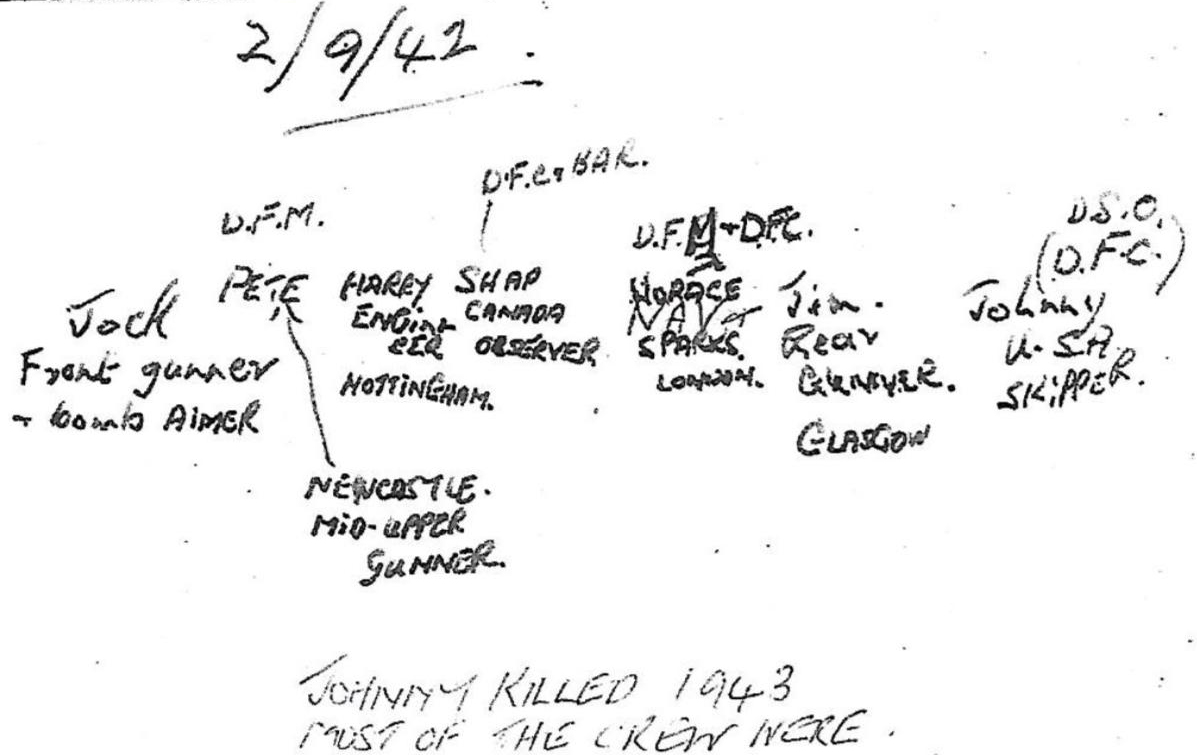 2/9/42.
D.F.C. & BAR.
D.F.M.
D.F.M + D.F.C.
D.S.O.
(D.F.C.)
Jock
Front gunner
+ bomb AIMER
PETE
NEWCASTLE.
MID-UPPER
GUNNER.
HARRY
ENGIN
EER
NOTTINGHAM.
SHAP
CANADA
OBSERVER
HORACE
SPARKS.
LONDON.
Jim.
Rear
GUNNER.
GLASGOW
Johnny
U.S.A.
SKIPPER.
JOHNNY KILLED 1943
MOST OF THE CREW WERE.